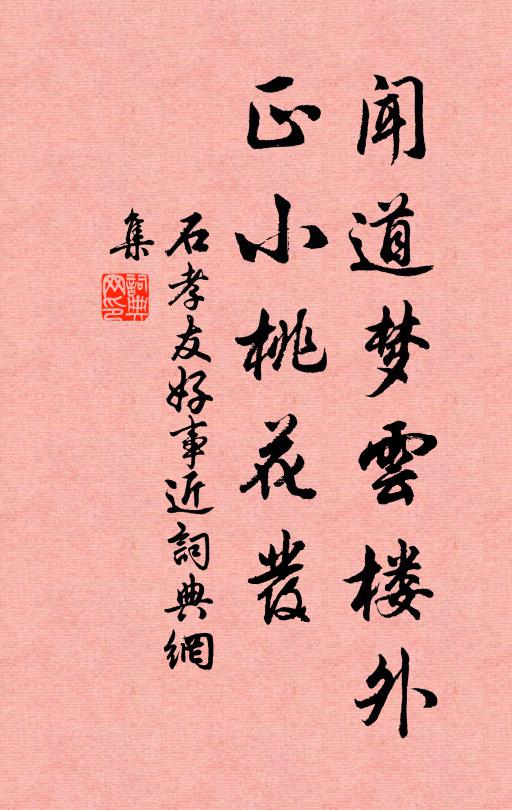 闻道梦雲楼外
正小桃花發
石孝友好事近詞典網
集
詞典
网印